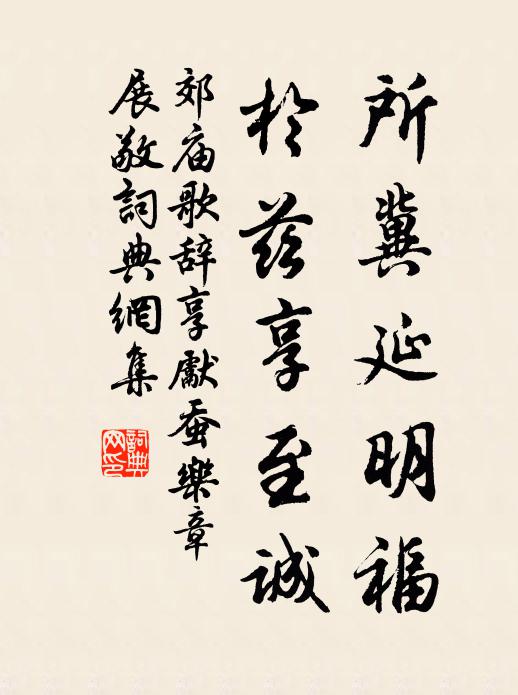 所冀延明福
於兹享至诚
郊庙歌辞享獻蚕樂章
展敬詞典網集
詞典网印